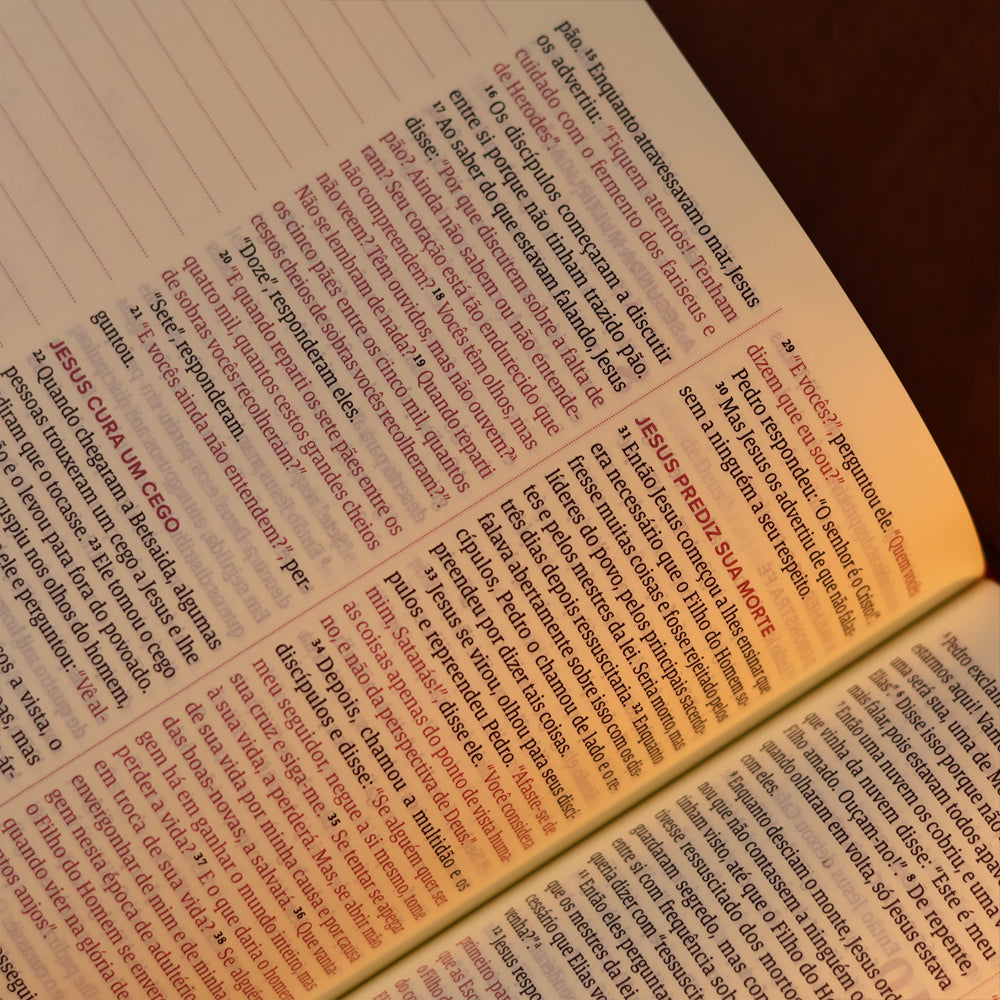 pão. 15 Enquanto atravessavam o mar, Jesus
os advertiu: “Fiquem atentos! Tenham
cuidado com o fermento dos fariseus e
de Herodes”.
16 Os discípulos começaram a discutir
entre si porque não tinham trazido pão.
17 Ao saber do que estavam falando, Jesus
disse: “Por que discutem sobre a falta de
pão? Ainda não sabem ou não entende-
ram? Seu coração está tão endurecido que
não compreendem? 18 Vocês têm olhos, mas
não veem? Têm ouvidos, mas não ouvem?
Não se lembram de nada? 19 Quando reparti
os cinco pães entre os cinco mil, quantos
cestos cheios de sobras vocês recolheram?”.
“Doze”, responderam eles.
20 “E quando reparti os sete pães entre os
quatro mil, quantos cestos grandes cheios
de sobras vocês recolheram?”
“Sete”, responderam.
21 “E vocês ainda não entendem?”, per-
guntou.
JESUS CURA UM CEGO
22 Quando chegaram a Betsaida, algumas
pessoas trouxeram um cego a Jesus e lhe
diram que o tocasse. 23 Ele tomou o cego
e o levou para fora do povoado.
cuspiu nos olhos do homem,
e perguntou: “Vê al-
a vista, o
mas
29 “E vocês?”, perguntou ele. “Quem vocês
dizem que eu sou?”
Pedro respondeu: “O senhor é o Cristo!”.
30 Mas Jesus os advertiu de que não falas-
sem a ninguém a seu respeito.
JESUS PREDIZ SUA MORTE
31 Então Jesus começou a lhes ensinar que
era necessário que o Filho do Homem so-
fresse muitas coisas e fosse rejeitado pelos
líderes do povo, pelos principais sacerdo-
tes e pelos mestres da lei. Seria morto, mas
três dias depois ressuscitaria. 32 Enquanto
falava abertamente sobre isso com os dis-
cípulos, Pedro o chamou de lado e o re-
preendeu por dizer tais coisas.
33 Jesus se virou, olhou para seus discí-
pulos e repreendeu Pedro. “Afaste-se de
mim, Satanás!”, disse ele. “Você considera
as coisas apenas do ponto de vista huma-
no, e não da perspectiva de Deus.”
34 Depois, chamou a multidão e os
discípulos e disse: “Se alguém quer ser
meu seguidor, negue a si mesmo, tome
sua cruz e siga-me. 35 Se tentar se apegar
à sua vida, a perderá. Mas, se abrir mão
de sua vida por minha causa e por causa
das boas-novas, a salvará. 36 Que vanta-
gem há em ganhar o mundo inteiro, mas
perder a vida? 37 E o que daria o homem
em troca de sua vida? 38 Se alguém
envergonhar de mim e de minha
gem nesta época de adultério
o Filho do Homem se enver
quando vier na glória de
santos anjos”.
5 Pedro excla
estarmos aqui! Vam
uma será sua, uma de M
Elias”. 6 Disse isso porque não
mais falar, pois estavam todos apa
7 Então uma nuvem os cobriu, e uma
que vinha da nuvem disse: “Este é meu
Filho amado. Ouçam-no!”. 8 De repente,
quando olharam em volta, só Jesus estava
com eles.
9 Enquanto desciam o monte, Jesus or
nou que não contassem a ninguém
tinham visto, até que o Filho do
tivesse ressuscitado dos mortos
guardaram segredo, mas
entre si com frequência
queria dizer com “ressusci
11 Então eles pergunta
que os mestres da lei
cessário que Elias v
venha?”
12 Jesus respo
primeiro pa
que as Es
o Filho